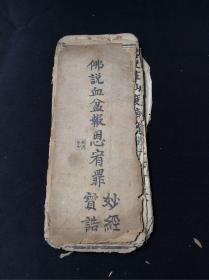 佛説血盆報恩宥罪
妙經
寳誥